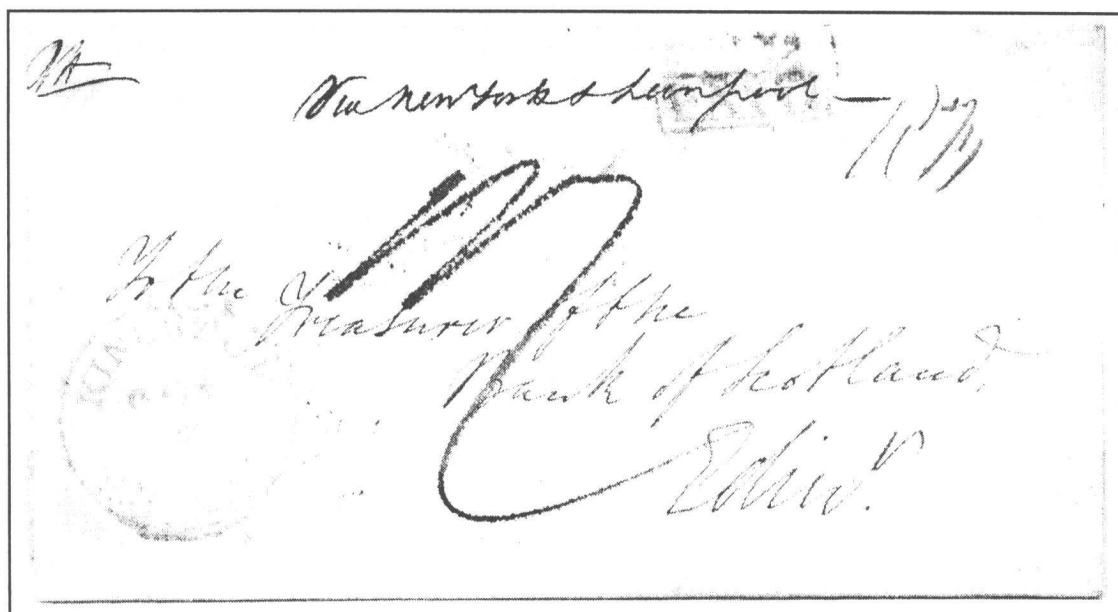 Via New York & Liverpool —
To the
Treasurer of the
Bank of Scotland,
Edinr.